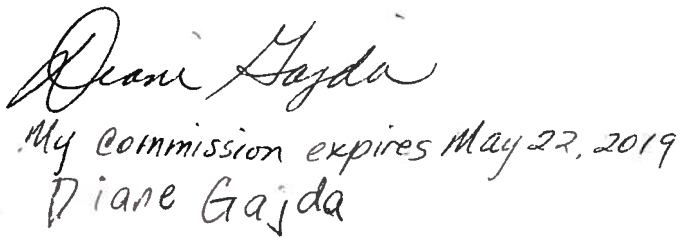 Diane Gajda
My commission expires May 22, 2019
Diane Gajda